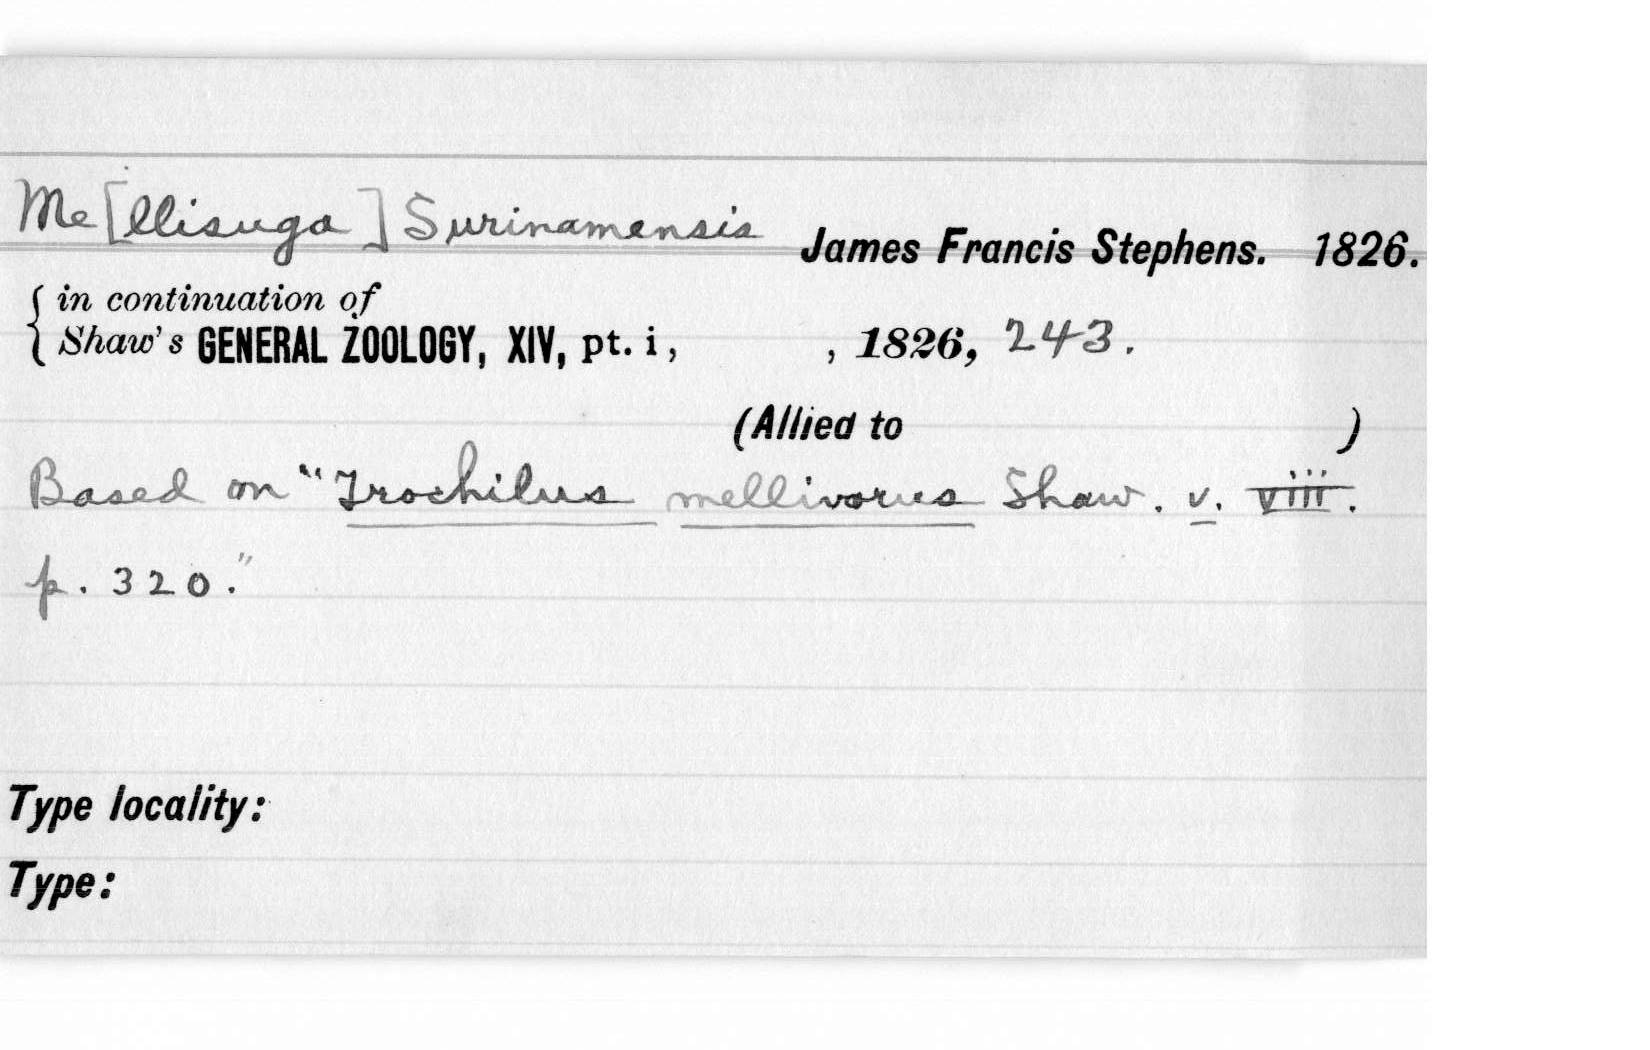 Me[llisuga] Surinamensis James Francis Stephens. 1826.
in continuation of
Shaw's GENERAL ZOOLOGY, XIV, pt. i, , 1826, 243.
(Allied to )
Based on "Trochilus mellivorus Shaw. v. viii.
p. 320."
Type locality:
Type: